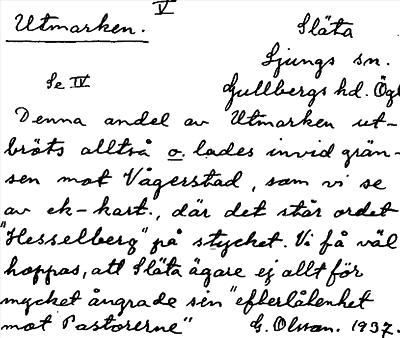 V
Utmarken. Släta
Ljungs sn.
Se IV Gullbergs hd. Ögl
Denna andel av Utmarken ut-
bröts alltså o. lades invid grän-
sen mot Vågerstad, som vi se
av ek-kart., där det står ordet
"Hesselberg" på stycket. Vi få väl
hoppas, att Släta ägare ej allt för
mycket ångrade sin "efterlåtenhet
mot Pastorerne" G. Olsson. 1937.